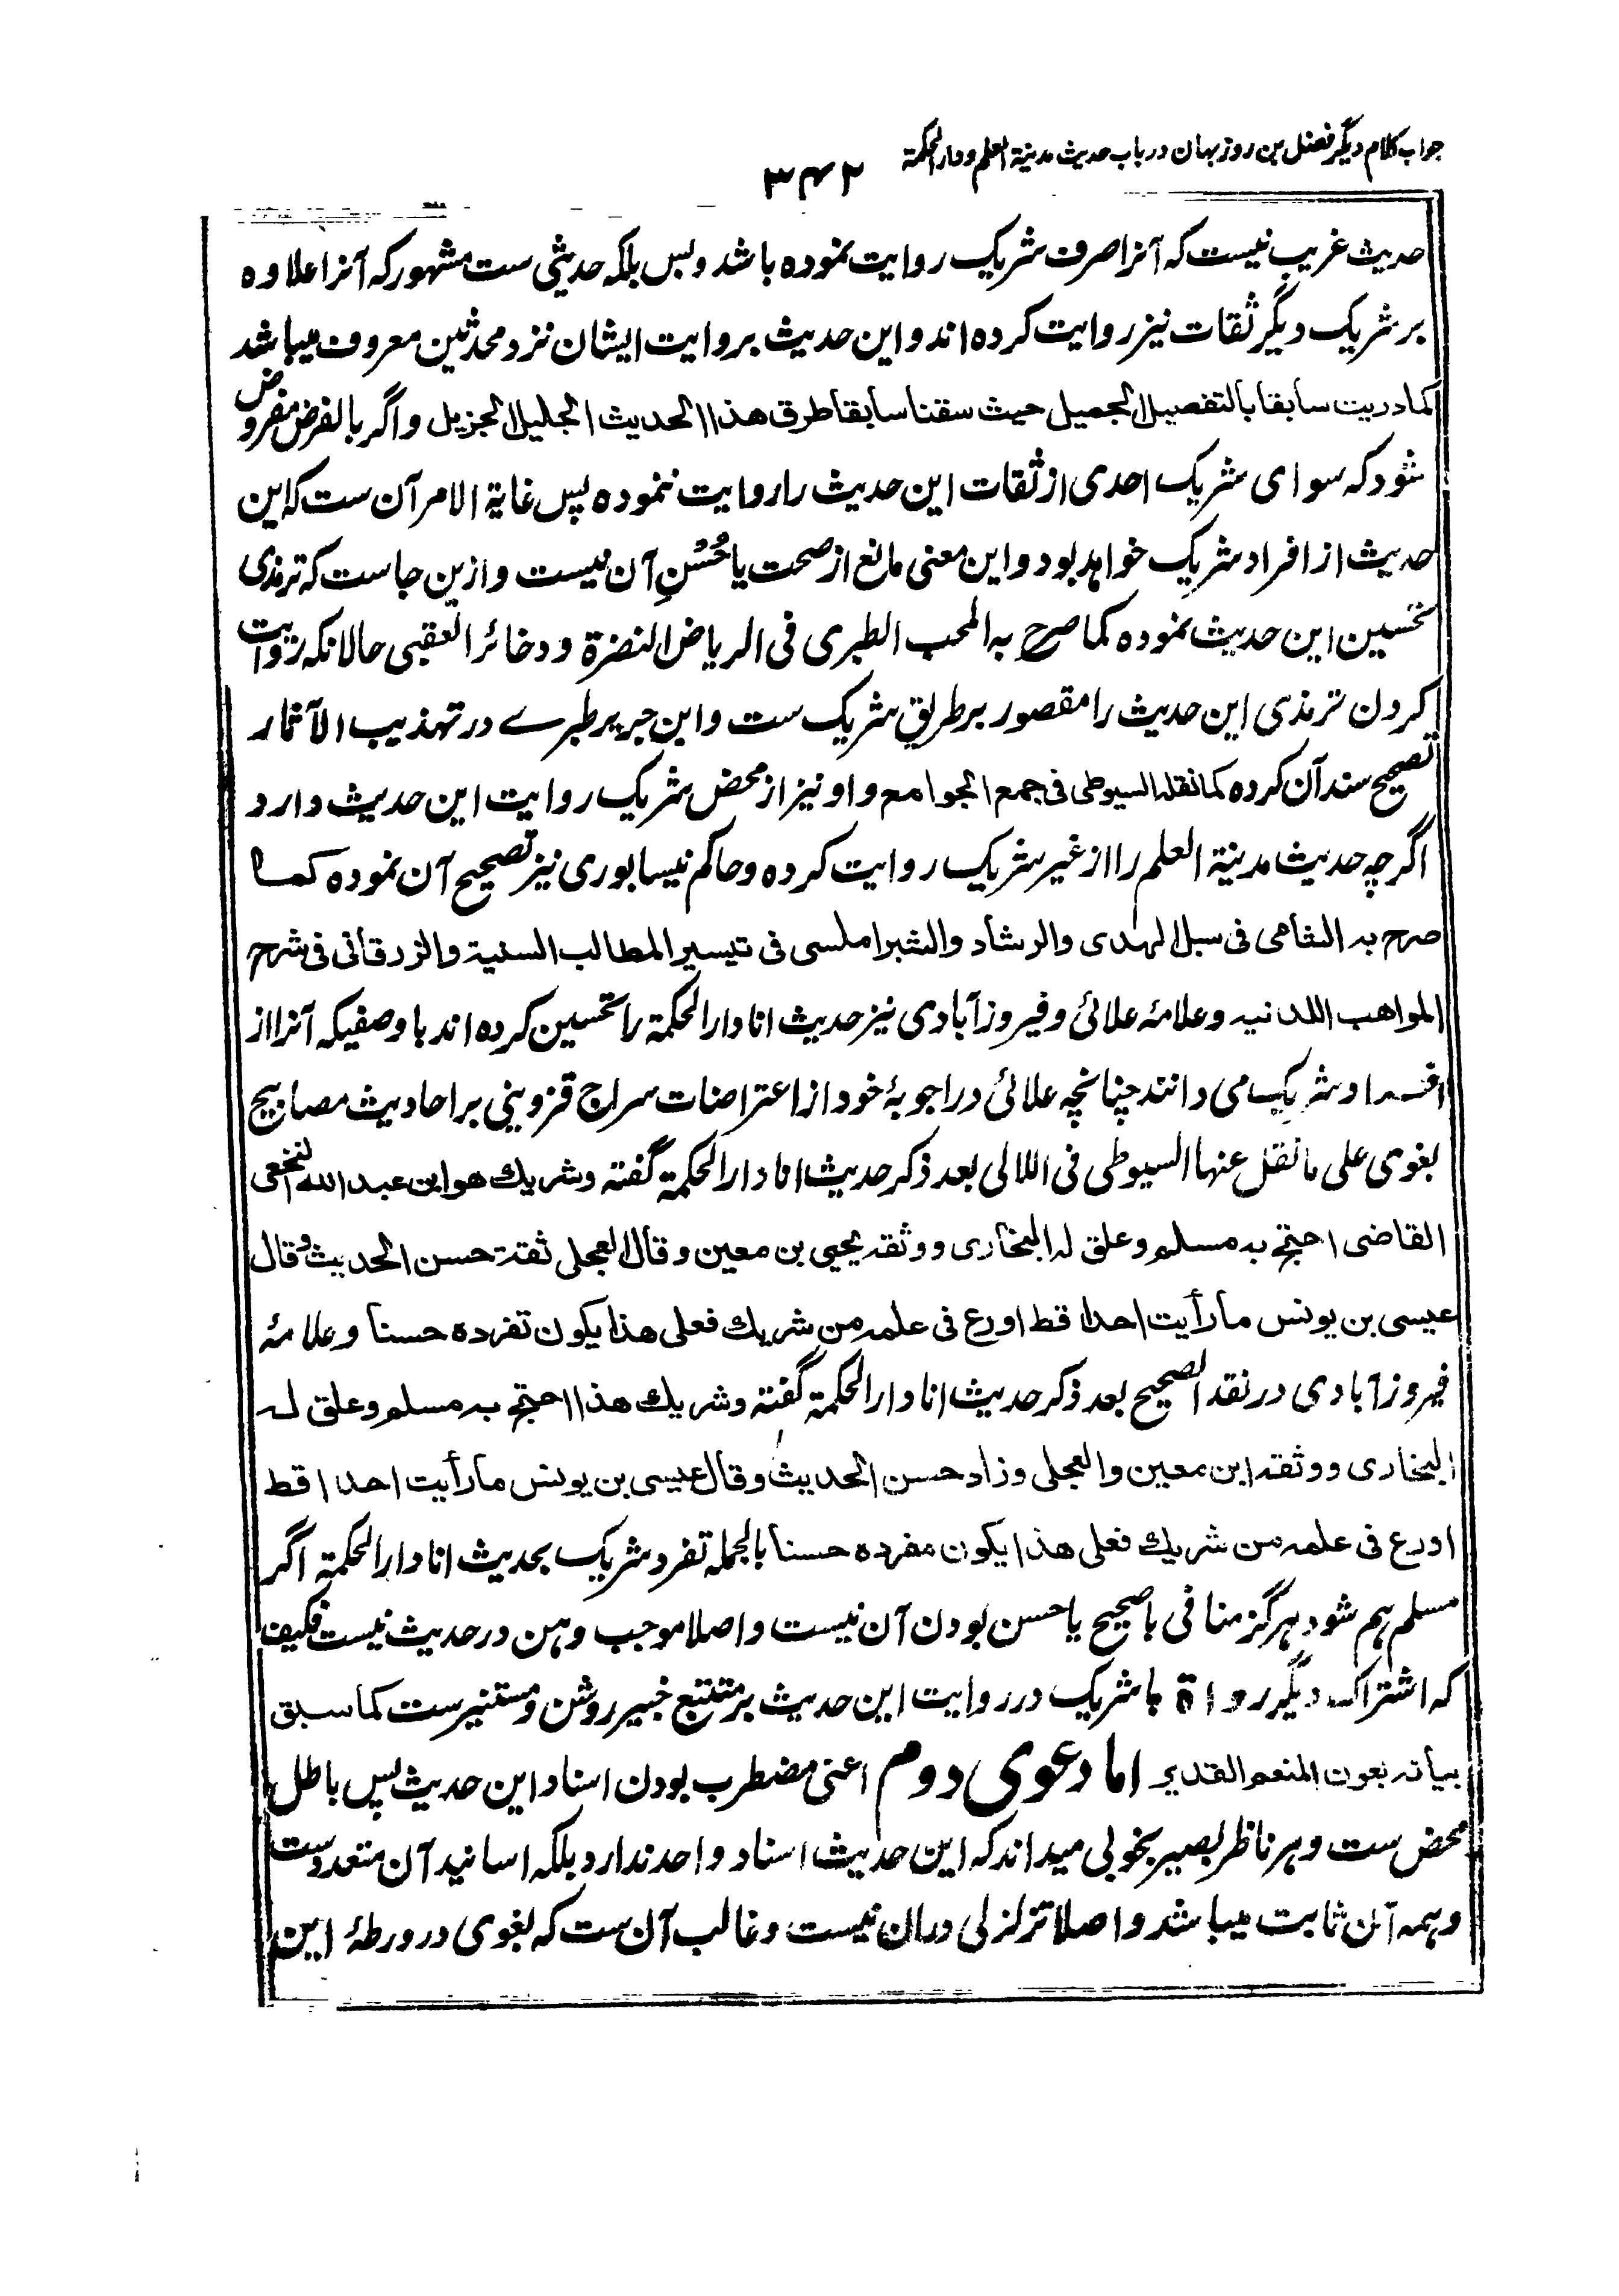 جواب کلام دیگر فضل بن روزبهان در باب حدیث مدینة العلم و دار الحکمة
۳۴۲
حدیث غریب نیست که آنرا صرف شریک روایت نموده باشد و بس بلکه حدیثی ست مشهور که آنرا علاوه
بر شریک دیگر ثقات نیز روایت کرده اند و این حدیث بروایت ایشان نزد محدثین معروف میباشد
کما دریت سابقا بالتفصیل الجمیل حیث سقنا سابقا طرق هذا الحدیث الجلیل الجزیل و اگر بالفرض مفروض
شود که سوای شریک احدی از ثقات این حدیث را روایت ننموده پس غایة الامر آن ست که این
حدیث از افراد شریک خواهد بود و این معنی مانع از صحت یا حُسْنِ آن نیست و ازین جاست که ترمذی
تحسین این حدیث نموده کما صرح به المحب الطبری فی الریاض النضرة و ذخائر العقبی حالانکه روایت
کردن ترمذی این حدیث را مقصور بر طریق شریک ست و ابن جریر طبرے در تهذیب الآثار
تصحیح سند آن کرده کما نقله السیوطی فی جمع الجوامع و او نیز از محض شریک روایت این حدیث دارد
اگرچه حدیث مدینة العلم را از غیر شریک روایت کرده و حاکم نیسابوری نیز تصحیح آن نموده کما
صرح به الشامی فی سبل الهدی والرشاد والشبراملسی فی تیسیر المطالب السنیة والزرقانی فی شرح
المواهب اللدنیه و علامۀ علائی و فیروزآبادی نیز حدیث انا دار الحکمة را تحسین کرده اند با وصفیکه آنرا از
افراد شریک می دانند چنانچه علائی در اجوبۀ خود از اعتراضات سراج قزوینی بر احادیث مصابیح
بغوی علی ما نقل عنها السیوطی فی اللالی بعد ذکر حدیث انا دار الحکمة گفته وشریك هو ابن عبد الله النخعی
القاضی احتج به مسلم وعلق له البخاری ووثقه یحیی بن معین وقال العجلی ثقة حسن الحدیث وقال
عیسی بن یونس ما رأیت احدا قط اورع فی علمه من شریك فعلی هذا یکون تفرده حسنا و علامۀ
فیروزآبادی در نقد الصحیح بعد ذکر حدیث انا دار الحکمة گفته وشریك هذا احتج به مسلم وعلق له
البخاری ووثقه ابن معین والعجلی وزاد حسن الحدیث وقال عیسی بن یونس ما رأیت احدا قط
اورع فی علمه من شریك فعلی هذا یکون مفرده حسنا بالجمله تفرد شریک بحدیث انا دار الحکمة اگر
مسلم هم شود هرگز منافی با صحیح یا حسن بودن آن نیست و اصلا موجب وهن در حدیث نیست فکیف
که اشتراک دیگر رواة با شریک در روایت این حدیث بر متتبع خبیر روشن و مستنیر ست کما سبق
بیانه بعون المنعم القدیر اما دعوی دوم اعنی مضطرب بودن اسناد این حدیث پس باطل
محض ست و هر ناظر بصیر بخوبی میداند که این حدیث اسناد واحد ندارد بلکه اسانید آن متعددست
و همه آن ثابت میباشد و اصلا تزلزلی دران نیست و غالب آن ست که بغوی در ورطۀ این